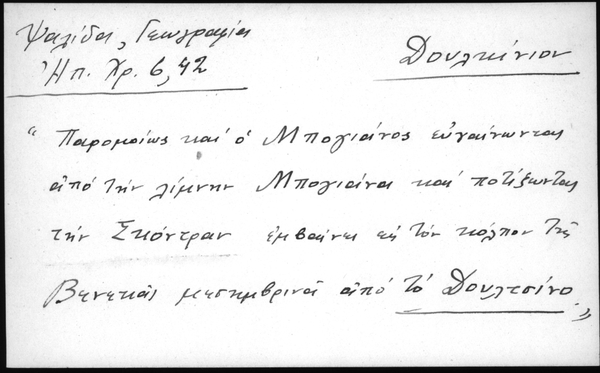 Ψαλίδα, Γεωγραφία
Ἠπ. Χρ. 6, 42
Δουλκίνιον
"Παρομοίως καὶ ὁ Μπογιάνος εὐγαίνωντας
ἀπό τὴν λίμνην Μπογιάνα καὶ ποτίζωντας
τὴν Σκόντραν ἐμβαίνει εἰς τὸν κόλπον τῆς
Βενεκιᾶς μεσημβρινά ἀπό τό Δουλτσίνο"